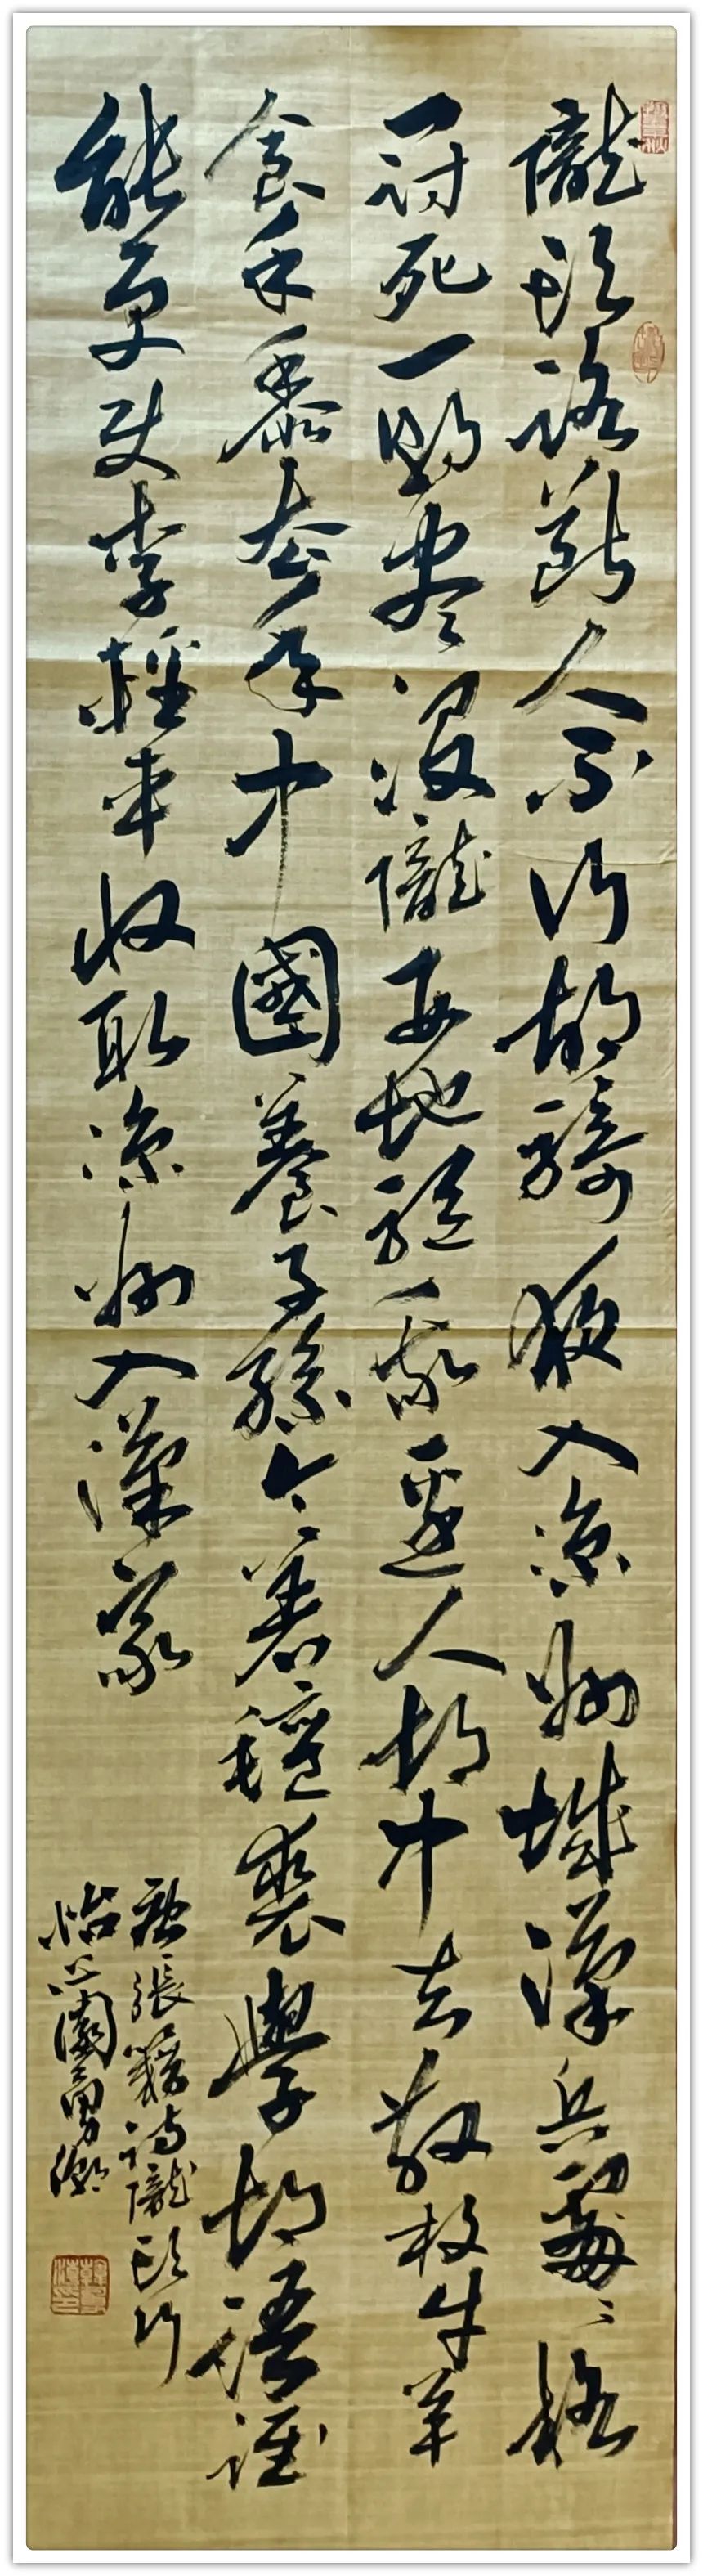 隴頭路斷人不行胡騎夜入涼州城漢兵處〻格
鬭死一朝盡沒隴西地驅我邊人胡中去散放牛羊
食禾黍去年中國養子孫今著氊裘學胡語誰
能更使李輕車收取涼州入漢家
張籍詩隴頭行
怡心園勇